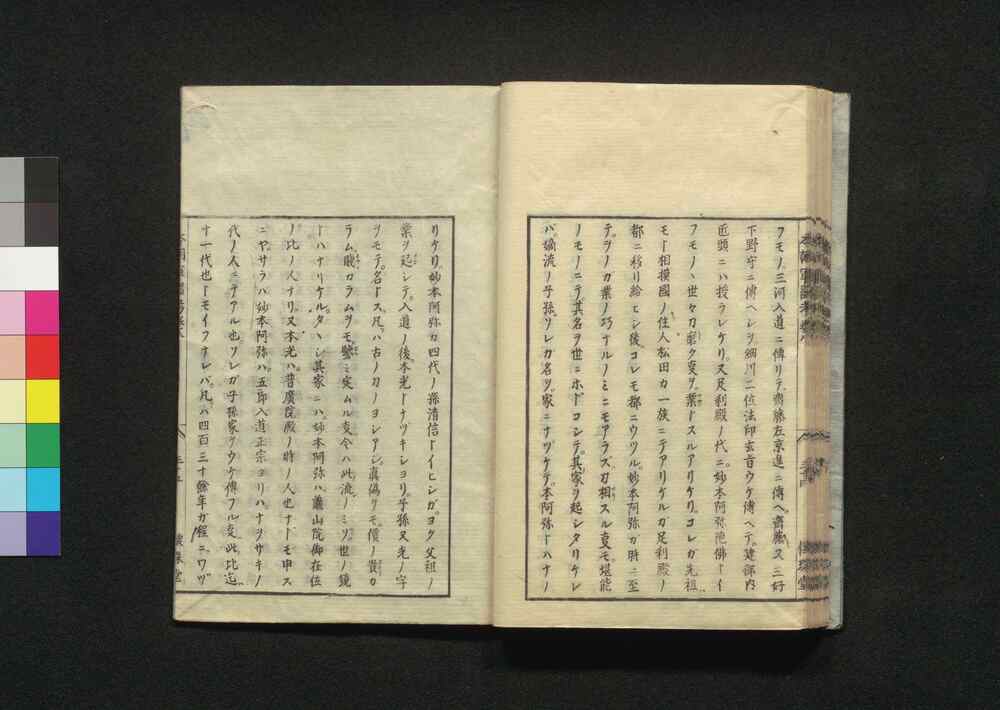 フモノ三河入道ニ傳リテ齋藤左京進ニ傳ヘ齋藤又三好
下野守ニ傳ヘシヲ細川二位法印玄旨ウケ傳ヘテ建部内
匠頭ニハ授ラレケリ又足利殿ノ代ニ妙本阿弥陀佛トイ
フモノハ世々刀磨ク叓ヲ業トスルアリケリコレガ先祖
モト相摸國ノ住人松田カ一族ニテアリケルガ足利殿ノ
都ニ移リ給ヒシ後コレモ都ニウツル妙本阿弥カ時ニ至
テソノカ業ノ巧ナルノミニモアラズ刀相スル叓モ堪能
ノモノニテ其名ヲ世ニホドコシテ其家ヲ起シタリケレ
バ嫡流ノ子孫ソレガ名ヲ家ニナツケテ本阿弥トハナノ
リケリ妙本阿弥カ四代ノ孫清信トイヒシガヨク父祖ノ
業ヲ起シテ入道ノ後本光トナヅキショリ子孫又光ノ字
ヲモテ名トス凡ハ古ノカノヨシアシ真偽ヲモ價ノ貴カ
ラム賎カラムヲモ鑒ミ定ムル叓今ハ此流ノミゾ世ノ鏡
トハナリケルタヽシ其家ニハ妙本阿弥ハ蘿山院御在位
ノ比ノ人ナリ又本光ハ普廣院殿ノ時ノ人也ナトモ申ス
ニヤサラハ妙本阿弥ハ五郎入道正宗ヨリハナヲサキノ
代ノ人ニテアル也ソレガ子孫家ヲウケ傳フル叓此比迄
十一代也トモイフナレバ凡ハ四百三十餘年ガ程ニワヅ